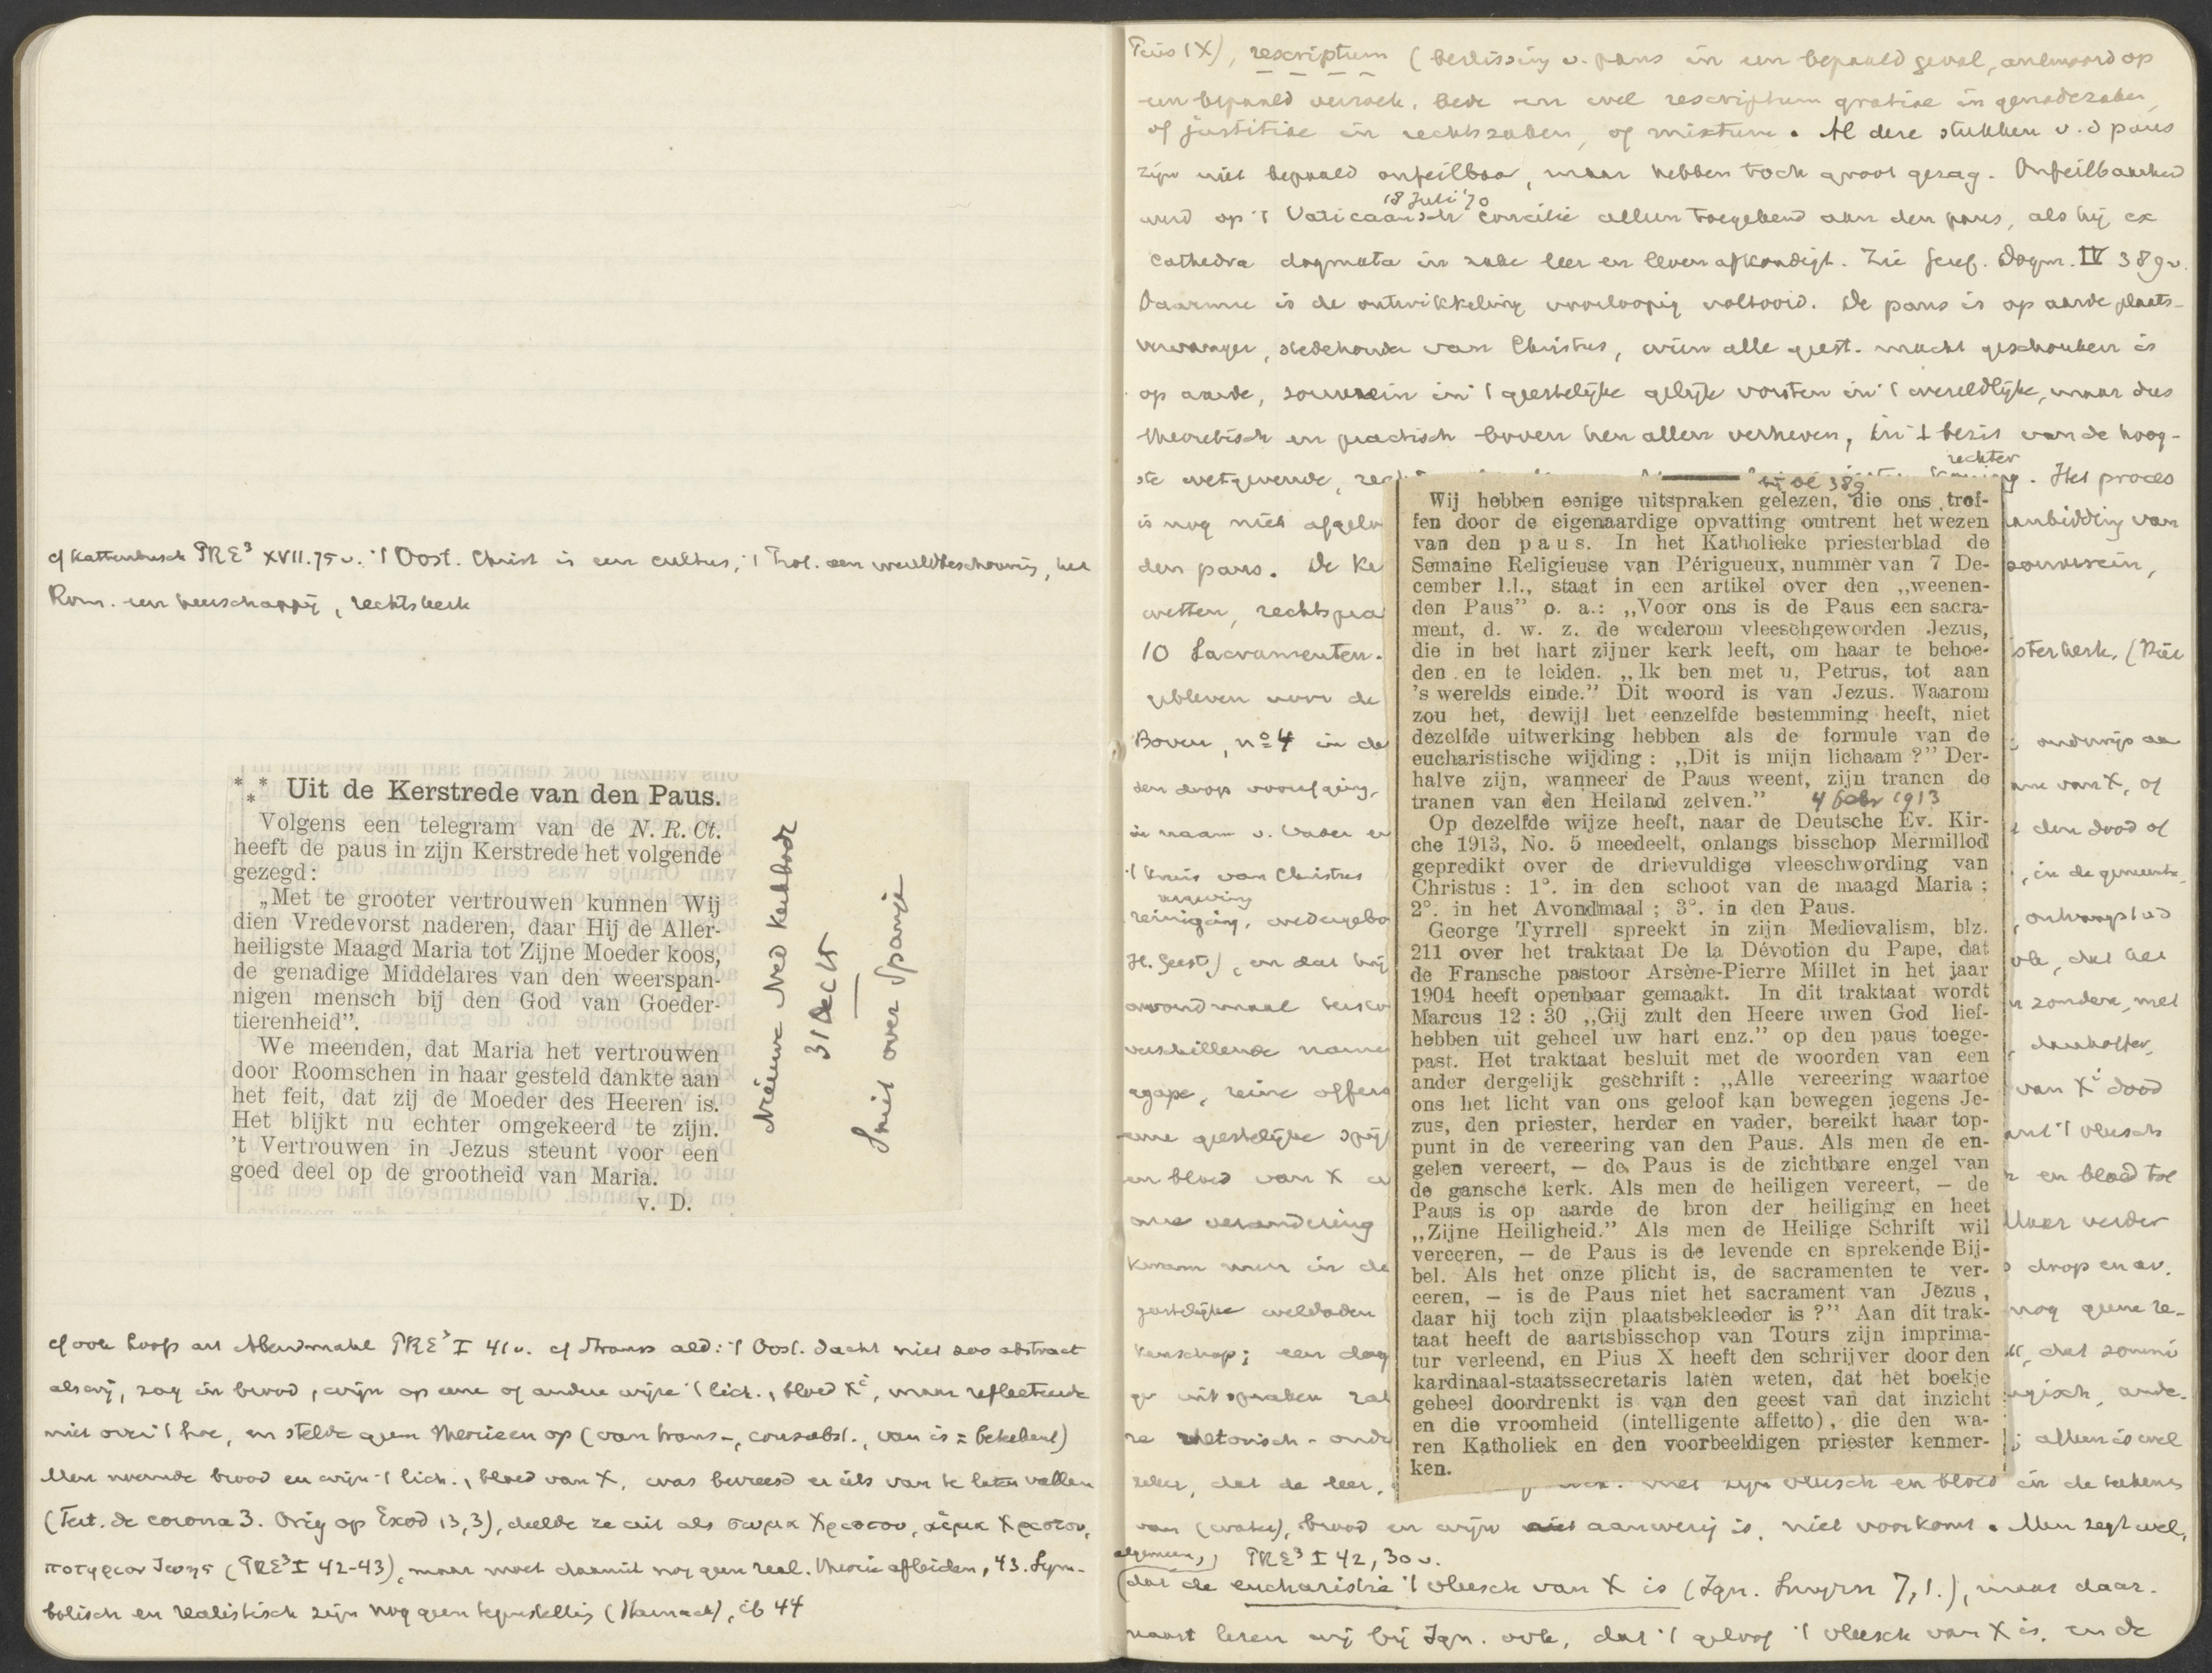 cf Kattenbusch PRE³ XVII.75v. 't Oost. Christ is een cultus, 't Prot. een wereldbeschouwing, het
Rom. een heerschappij, rechtskerk
*** Uit de Kerstrede van den Paus.
Volgens een telegram van de N. R. Ct.
heeft de paus in zijn Kerstrede het volgende
gezegd:
„Met te grooter vertrouwen kunnen Wij
dien Vredevorst naderen, daar Hij de Aller-
heiligste Maagd Maria tot Zijne Moeder koos,
de genadige Middelares van den weerspan-
nigen mensch bij den God van Goeder-
tierenheid”.
We meenden, dat Maria het vertrouwen
door Roomschen in haar gesteld dankte aan
het feit, dat zij de Moeder des Heeren is.
Het blijkt nu echter omgekeerd te zijn.
't Vertrouwen in Jezus steunt voor een
goed deel op de grootheid van Maria.
v. D.
Nieuwe Ned Kerkbode
31 Dec 15
Smit over Spanje
cf ook Loofs art Abendmahl PRE³ I 41v. cf Strauss ald: 't Oost. dacht niet zoo abstract
als wij, zag in brood, wijn op eene of andere wijze 't lich., bloed X<sup>i</sup>, maar reflecteerde
niet over 't hoe, en stelde geen theorieen op (van trans-, consubst., van is = betekent)
Men noemde brood en wijn 't lich., bloed van X, was bevreesd er iets van te laten vallen
(Tert. de corona 3. Orig op Exod 13,3), deelde ze uit als σωμα Χριστου, αἷμα Χριστου,
ποτηριον Ιησου (PRE³ I 42-43), maar moet daaruit nog geen real. theorie afleiden, 43. Sym-
bolisch en realistisch zijn nog geen tegenstelling (Harnack), ib 44
Pius IX), rescriptum (beslissing v. paus in een bepaald geval, antwoord op
een bepaald verzoek, bede en wel rescriptum gratiae in genadezaken,
of justitiae in rechtszaken, of mixtum. Al deze stukken v. d paus
zijn niet bepaald onfeilbaar, maar hebben toch groot gezag. Onfeilbaarheid
18 Juli '70
werd op 't Vaticaansch Concilie alleen toegekend aan den paus, als hij ex
cathedra dogmata in zake leer en leven afkondigt. Zie Geref. Dogm. IV 389v.
Daarmee is de ontwikkeling voorloopig voltooid. De paus is op aarde plaats-
vervanger, stedehouder van Christus, wien alle geest. macht geschonken is
op aarde, souverein in 't geestelijke gelijk vorsten in 't wereldlijke, maar dus
theoretisch en practisch boven hen allen verheven, in 't bezit van de hoog-
rechter
ste wetgevende, . Het proces
is nog niet afgelo anbidding van
den paus. De ke souverein,
wetten, rechtspra
10 Sacramenten. sterkerk, (Niet
gebleven voor de
Boven, nº 4 in de onderwijs aa
den doop voorafging, van X, of
in naam v. Vader e den dood of
't kruis van Christus , in de gemeente,
vergeving
reiniging, wedergebo , ontvangst v d
H. Geest), en dat hij ok, dat het
avondmaal zonden, met
verschillende name dankoffer,
agape, reine offera van X<sup>i</sup> dood
eene geestelijke spij 't vleesch
en bloed van X en bloed tot
onze verandering Maar verder
kwam men in de doop en av.
geestelijke weldaden nog geene re-
kenschap; een dog , dat sommi
ge uitspraken ande-
re rhetorisch - onde ; alleen is wel
zeker, dat de leer, met zijn vleesch en bloed in de tekens
van (water), brood en wijn aanwezig is, niet voorkomt. Men zegt wel,
algemeen, PRE³ I 42, 30v.
(dat de eucharistie 't vleesch van X is (Ign. Smyrn 7,1.), maar daar-
naast lezen wij bij Ign. ook, dat 't geloof 't vleesch van X is, en de
bl 389
Wij hebben eenige uitspraken gelezen, die ons trof-
fen door de eigenaardige opvatting omtrent het wezen
van den paus. In het Katholieke priesterblad de
Semaine Religieuse van Périgueux, nummer van 7 De-
cember l.l., staat in een artikel over den „weenen-
den Paus” o. a.: „Voor ons is de Paus een sacra-
ment, d. w. z. de wederom vleeschgeworden Jezus,
die in het hart zijner kerk leeft, om haar te behoe-
den en te leiden. „Ik ben met u, Petrus, tot aan
's werelds einde.” Dit woord is van Jezus. Waarom
zou het, dewijl het eenzelfde bestemming heeft, niet
dezelfde uitwerking hebben als de formule van de
eucharistische wijding: „Dit is mijn lichaam?” Der-
halve zijn, wanneer de Paus weent, zijn tranen de
tranen van den Heiland zelven.” 4 Febr 1913
Op dezelfde wijze heeft, naar de Deutsche Ev. Kir-
che 1913, No. 5 meedeelt, onlangs bisschop Mermillod
gepredikt over de drievuldige vleeschwording van
Christus: 1°. in den schoot van de maagd Maria;
2°. in het Avondmaal; 3°. in den Paus.
George Tyrrell spreekt in zijn Medievalism, blz.
211 over het traktaat De la Dévotion du Pape, dat
de Fransche pastoor Arsène-Pierre Millet in het jaar
1904 heeft openbaar gemaakt. In dit traktaat wordt
Marcus 12:30 „Gij zult den Heere uwen God lief-
hebben uit geheel uw hart enz.” op den paus toege-
past. Het traktaat besluit met de woorden van een
ander dergelijk geschrift: „Alle vereering waartoe
ons het licht van ons geloof kan bewegen jegens Je-
zus, den priester, herder en vader, bereikt haar top-
punt in de vereering van den Paus. Als men de en-
gelen vereert, — de Paus is de zichtbare engel van
de gansche kerk. Als men de heiligen vereert, — de
Paus is op aarde de bron der heiliging en heet
„Zijne Heiligheid.” Als men de Heilige Schrift wil
vereeren, — de Paus is de levende en sprekende Bij-
bel. Als het onze plicht is, de sacramenten te ver-
eeren, — is de Paus niet het sacrament van Jezus,
daar hij toch zijn plaatsbekleeder is?” Aan dit trak-
taat heeft de aartsbisschop van Tours zijn imprima-
tur verleend, en Pius X heeft den schrijver door den
kardinaal-staatssecretaris laten weten, dat het boekje
geheel doordrenkt is van den geest van dat inzicht
en die vroomheid (intelligente affetto), die den wa-
ren Katholiek en den voorbeeldigen priester kenmer-
ken.